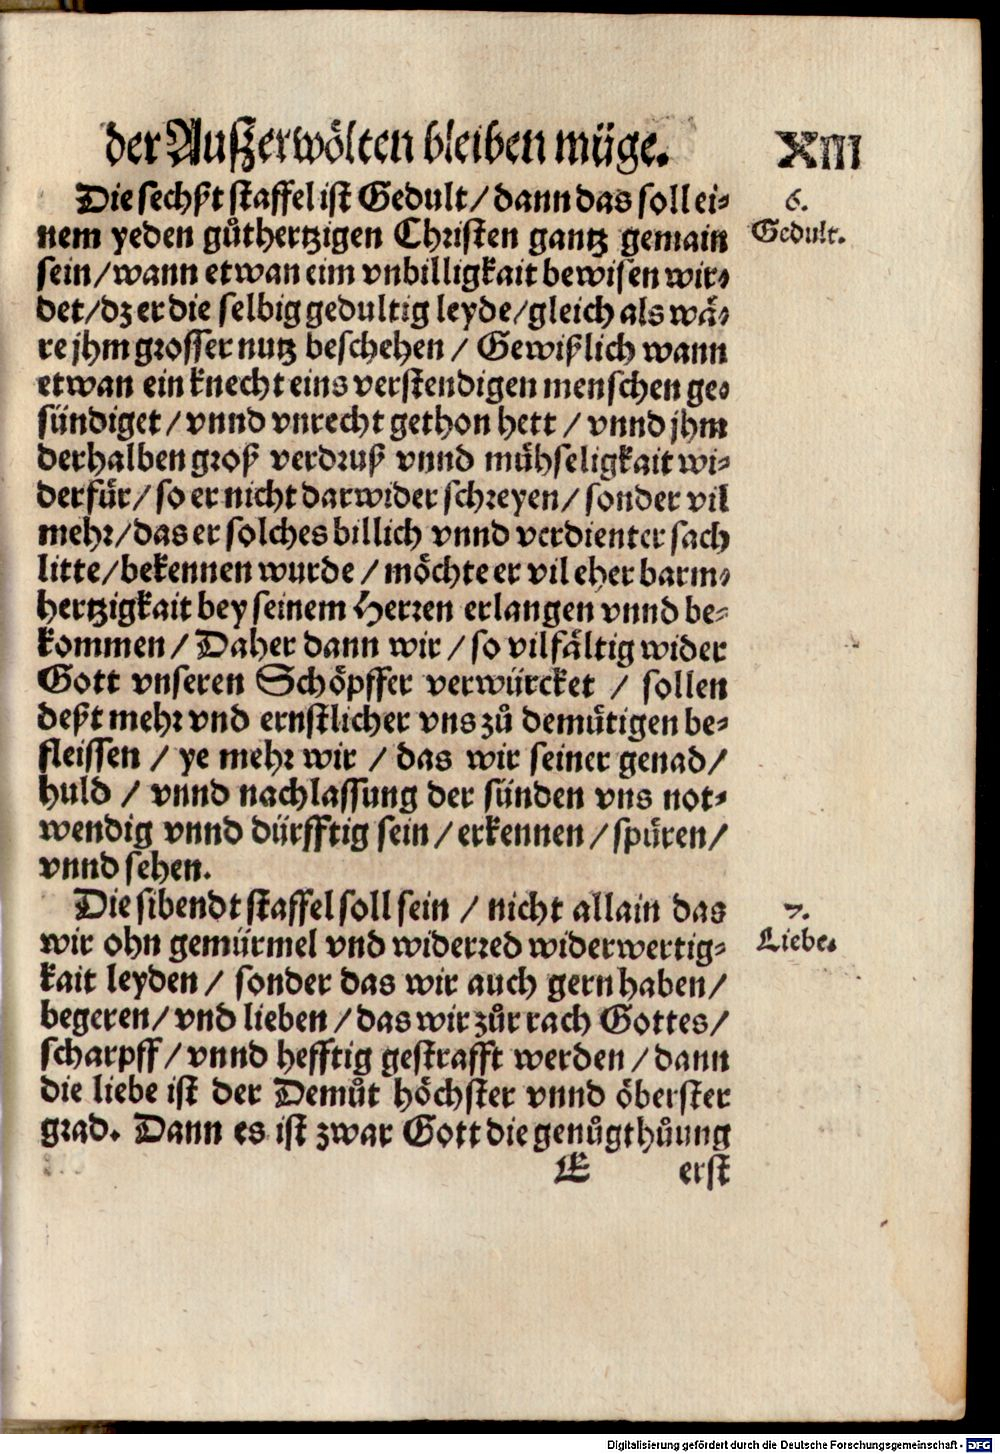 der Auſzerwoͤlten bleiben muͤge. XIII
Die ſechßt ſtaffel iſt Gedult / dann das ſoll ei⸗
6.
nem yeden guͦthertzigen Chriſten gantz gemain
Gedult.
ſein / wann etwan eim vnbilligkait bewiſen wir⸗
det / dz er die ſelbig gedultig leyde / gleich als waͤ⸗
re jhm groſſer nutz beſchehen / Gewißlich wann
etwan ein knecht eins verſtendigen menſchen ge⸗
ſündiget / vnnd vnrecht gethon hett / vnnd jhm
derhalben groß verdruß vnnd muͤhſeligkait wi⸗
derfuͤr / ſo er nicht darwider ſchreyen / ſonder vil
mehr / das er ſolches billich vnnd verdienter ſach
litte / bekennen wurde / moͤchte er vil eher barm⸗
hertzigkait bey ſeinem Herren erlangen vnnd be⸗
kommen / Daher dann wir / ſo vilfaͤltig wider
Gott vnſeren Schoͤpffer verwürcket / ſollen
deßt mehr vnd ernſtlicher vns zuͦ demuͤtigen be⸗
fleiſſen / ye mehr wir / das wir ſeiner genad /
huld / vnnd nachlaſſung der ſünden vns not⸗
wendig vnnd dürfftig ſein / erkennen / ſpüren /
vnnd ſehen.
Die ſibendt ſtaffel ſoll ſein / nicht allain das
7.
wir ohn gemürmel vnd widerred widerwertig⸗
Liebe.
kait leyden / ſonder das wir auch gern haben /
begeren / vnd lieben / das wir zuͦr rach Gottes /
ſcharpff / vnnd hefftig geſtrafft werden / dann
die liebe iſt der Demuͦt hoͤchſter vnnd oͤberſter
grad. Dann es iſt zwar Gott die genuͦgthuͦung
E erſt
Digitalisierung gefördert durch die Deutsche Forschungsgemeinschaft - DFG